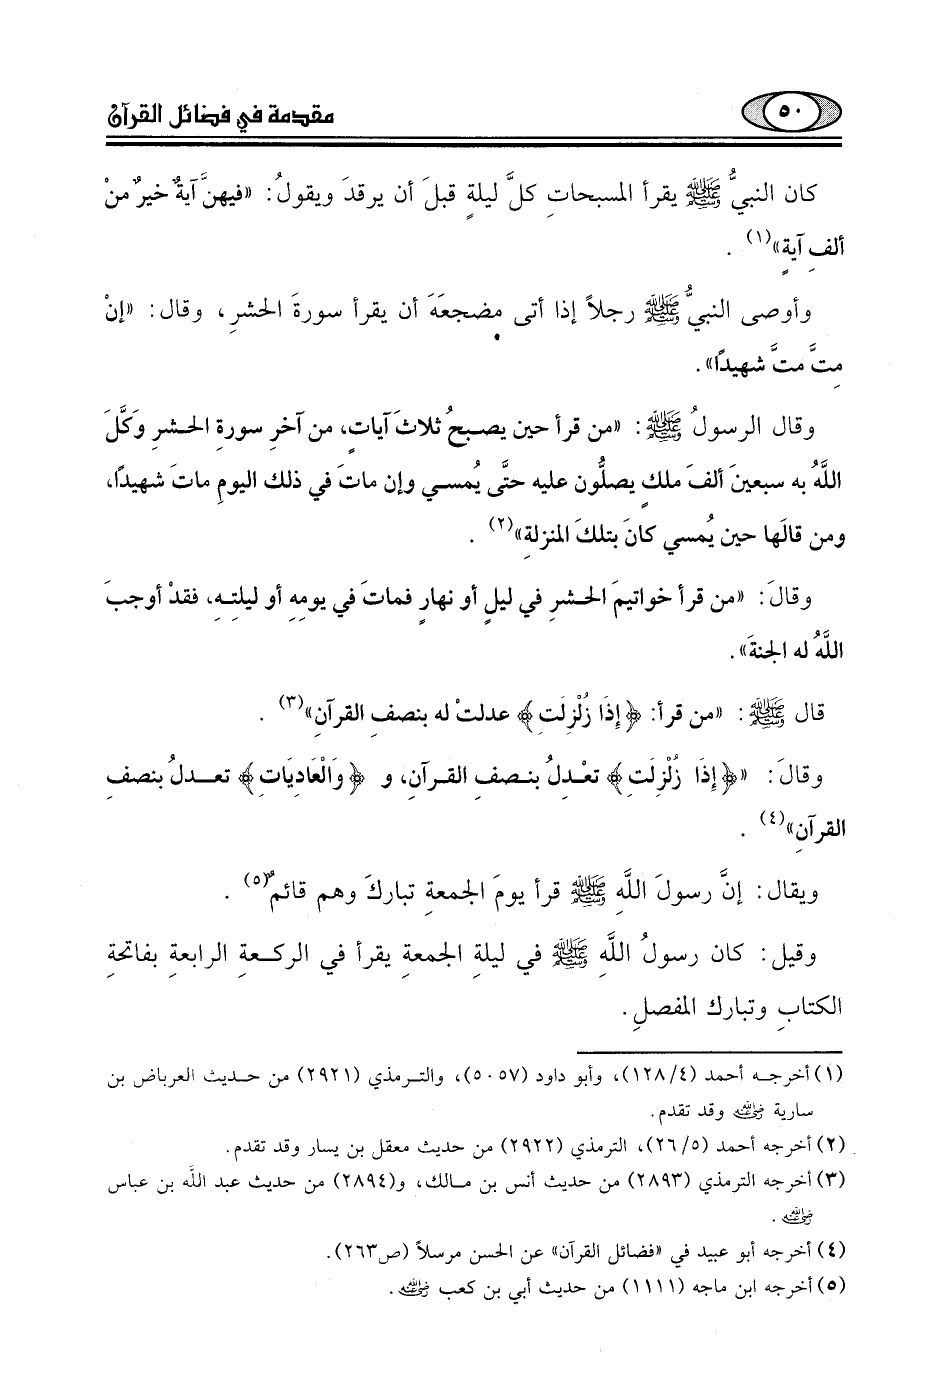 ٥٠
مقدمة في فضائل القرآن
كان النبيُّ ﷺ يقرأ المسبحاتِ كلَّ ليلةٍ قبلَ أن يرقدَ ويقولُ: «فيهنَّ آيةٌ خيرٌ منْ
ألفِ آيةٍ»(١) .
وأوصى النبيُّ ﷺ رجلاً إذا أتى مضجعَهَ أن يقرأ سورةَ الحشرِ، وقال: «إنْ
متَّ متَّ شهيدًا».
وقال الرسولُ ﷺ: «من قرأ حين يصبحُ ثلاثَ آياتٍ، من آخرِ سورةِ الحشرِ وَكَّلَ
اللَّهُ به سبعينَ ألفَ ملكٍ يصلُّون عليه حتَّى يُمسي وإن ماتَ في ذلك اليومِ ماتَ شهيدًا،
ومن قالَها حين يُمسي كانَ بتلكَ المنزلةِ»(٢) .
وقالَ: «من قرأ خواتيمَ الحشرِ في ليلٍ أو نهارٍ فماتَ في يومِهِ أو ليلتِهِ، فقدْ أوجبَ
اللَّهُ له الجنةَ».
قال ﷺ: «من قرأَ: ﴿إِذَا زُلْزِلَتِ﴾ عدلتْ له بنصفِ القرآنِ»(٣) .
وقالَ: «﴿إِذَا زُلْزِلَتِ﴾ تعْدلُ بنصفِ القرآنِ، و ﴿وَالْعَادِيَاتِ﴾ تعدلُ بنصفِ
القرآنِ»(٤) .
ويقال: إنَّ رسولَ اللَّهِ ﷺ قرأ يومَ الجمعةِ تباركَ وهم قائمٌ(٥) .
وقيل: كان رسولُ اللَّهِ ﷺ في ليلةِ الجمعةِ يقرأ في الركعةِ الرابعةِ بفاتحةِ
الكتابِ وتبارك المفصلِ.
(١) أخرجه أحمد (١٢٨/٤)، وأبو داود (٥٠٥٧)، والترمذي (٢٩٢١) من حديث العرباض بن
سارية رضي الله عنه وقد تقدم.
(٢) أخرجه أحمد (٢٦/٥)، الترمذي (٢٩٢٢) من حديث معقل بن يسار وقد تقدم.
(٣) أخرجه الترمذي (٢٨٩٣) من حديث أنس بن مالك، و(٢٨٩٤) من حديث عبد الله بن عباس
رضي الله عنه .
(٤) أخرجه أبو عبيد في «فضائل القرآن» عن الحسن مرسلاً (ص٢٦٣).
(٥) أخرجه ابن ماجه (١١١١) من حديث أبي بن كعب رضي الله عنه .